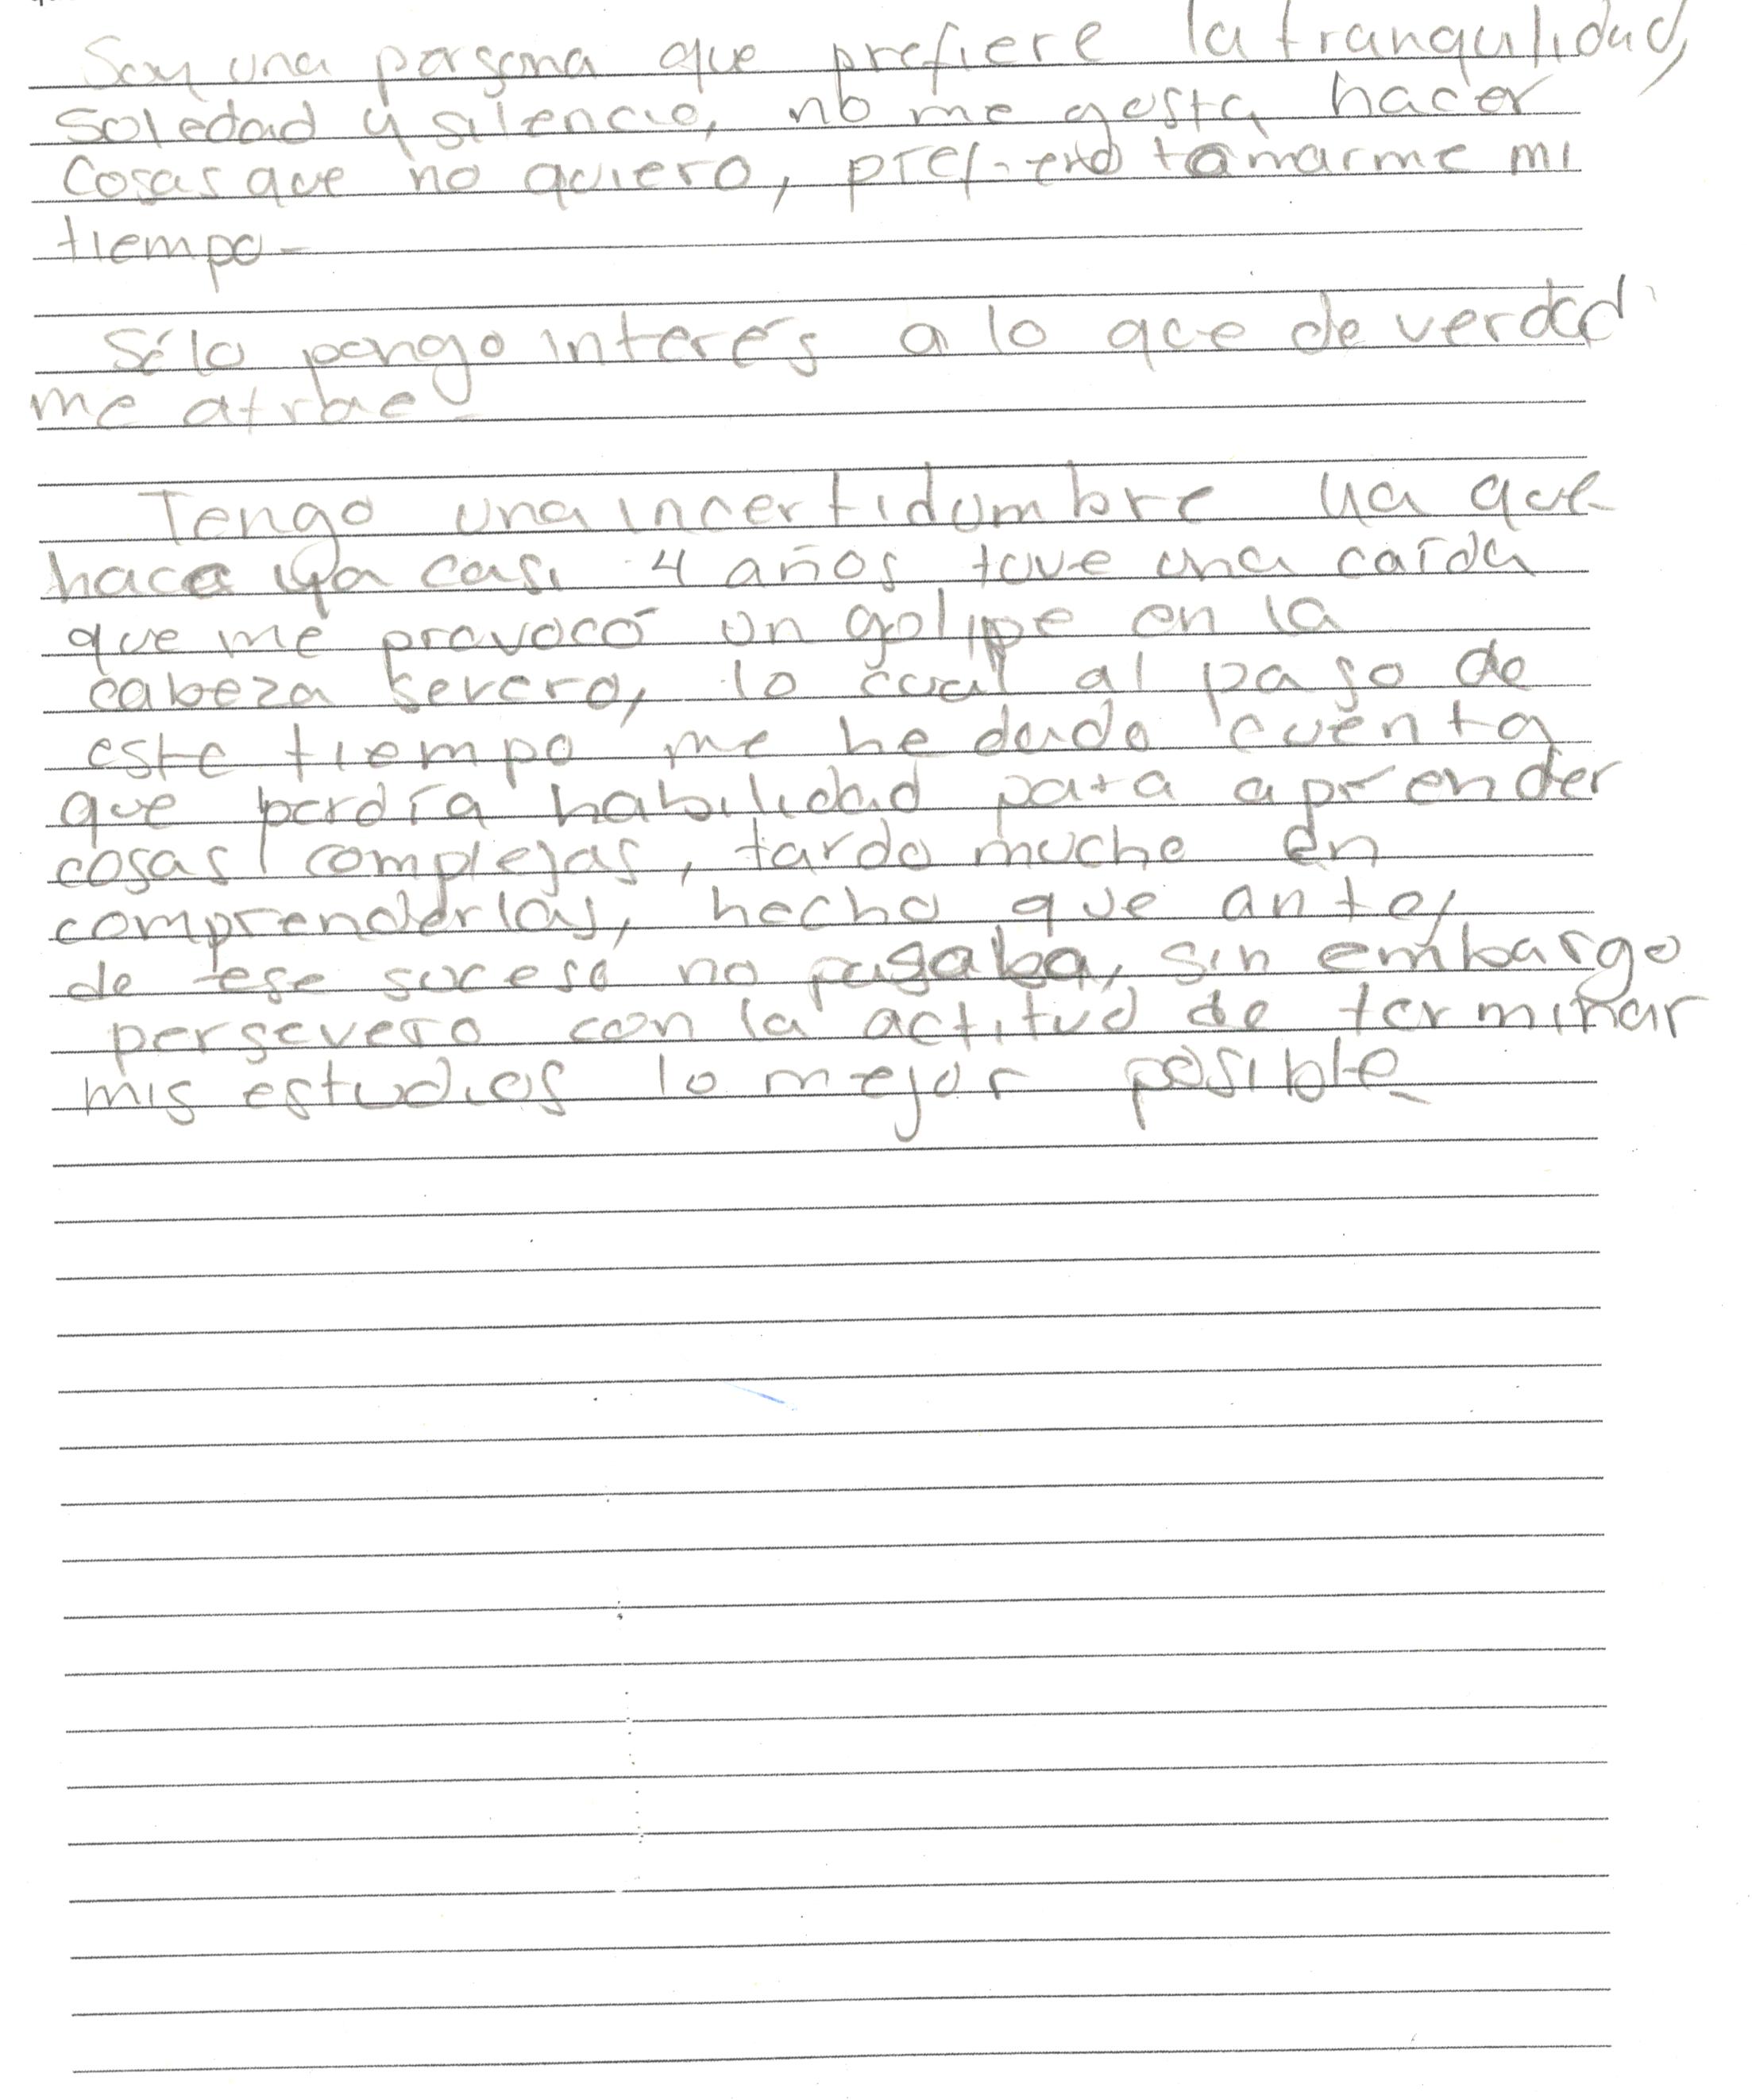 Soy una persona que prefiere la tranquilidad,
soledad y silencio, no me gusta hacer
cosas que no quiero, prefiero tomarme mi
tiempo-
Sólo pongo interés a lo que de verdad
me atrae-
Tengo una incertidumbre ya que
hace ya casi 4 años tuve una caída
que me provocó un golpe en la
cabeza severo, lo cual al paso de
este tiempo me he dado cuenta
que perdía habilidad para aprender
cosas complejas, tardo mucho en
comprenderlas, hecho que antes
de ese suceso no pasaba, sin embargo
persevero con la actitud de terminar
mis estudios lo mejor posible